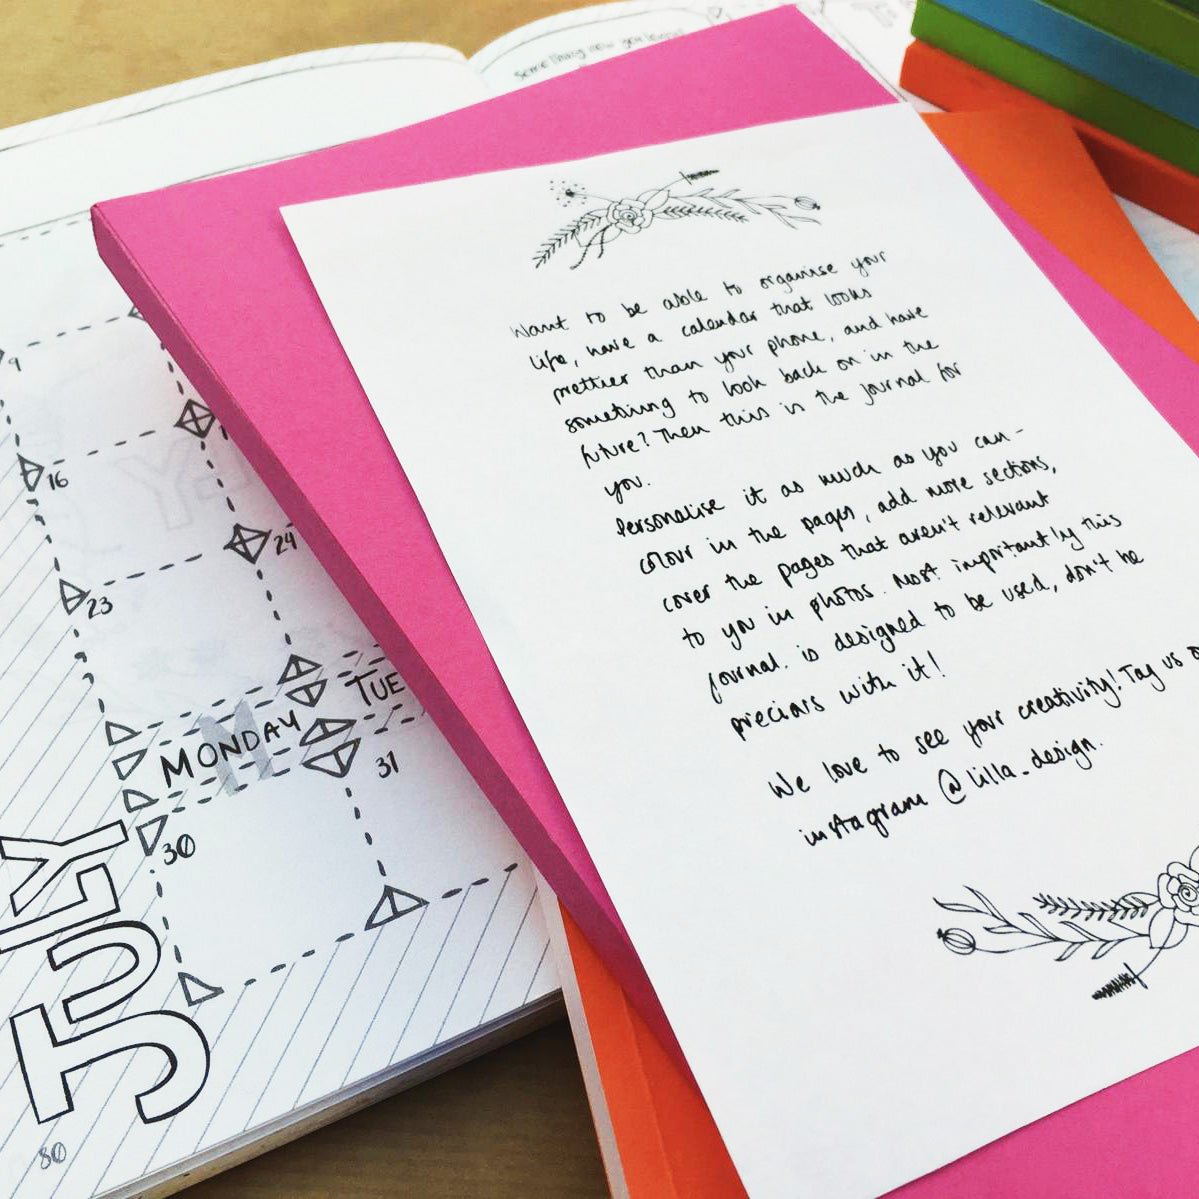 Something new you
9
16
24
23
MONDAY
TUE
31
30
JULY
80
Want to be able to organise your
life, have a calendar that looks
prettier than your phone, and have
something to look back on in the
future? Then this is the journal for
you.
Personalise it as much as you can -
colour in the pages, add more sections,
cover the pages that aren't relevant
to you in photos. Most importantly this
journal. is designed to be used, don't be
precious with it!
We love to see your creativity! Tag us o
instagram @lilla_design.